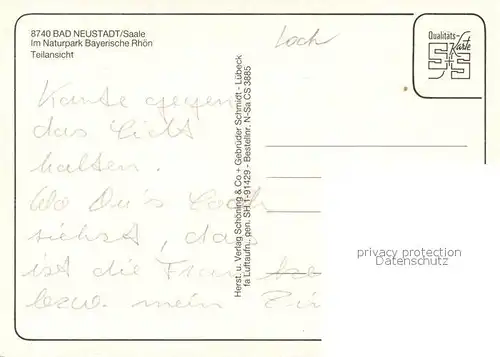 8740 BAD NEUSTADT/Saale
Im Naturpark Bayerische Rhön
Teilansicht
Loch
Qualitäts-
Karte
S+S
Karte gegen
das Licht
halten.
Wo Du's Loch
siehst, da
ist die
bezw. mein
Herst. u. Verlag Schöning & Co + Gebrüder Schmidt - Lübeck
fa Luftaufn., gen. SH 1-91429 - Bestellnr. N-Sa CS 3885
privacy protection
Datenschutz